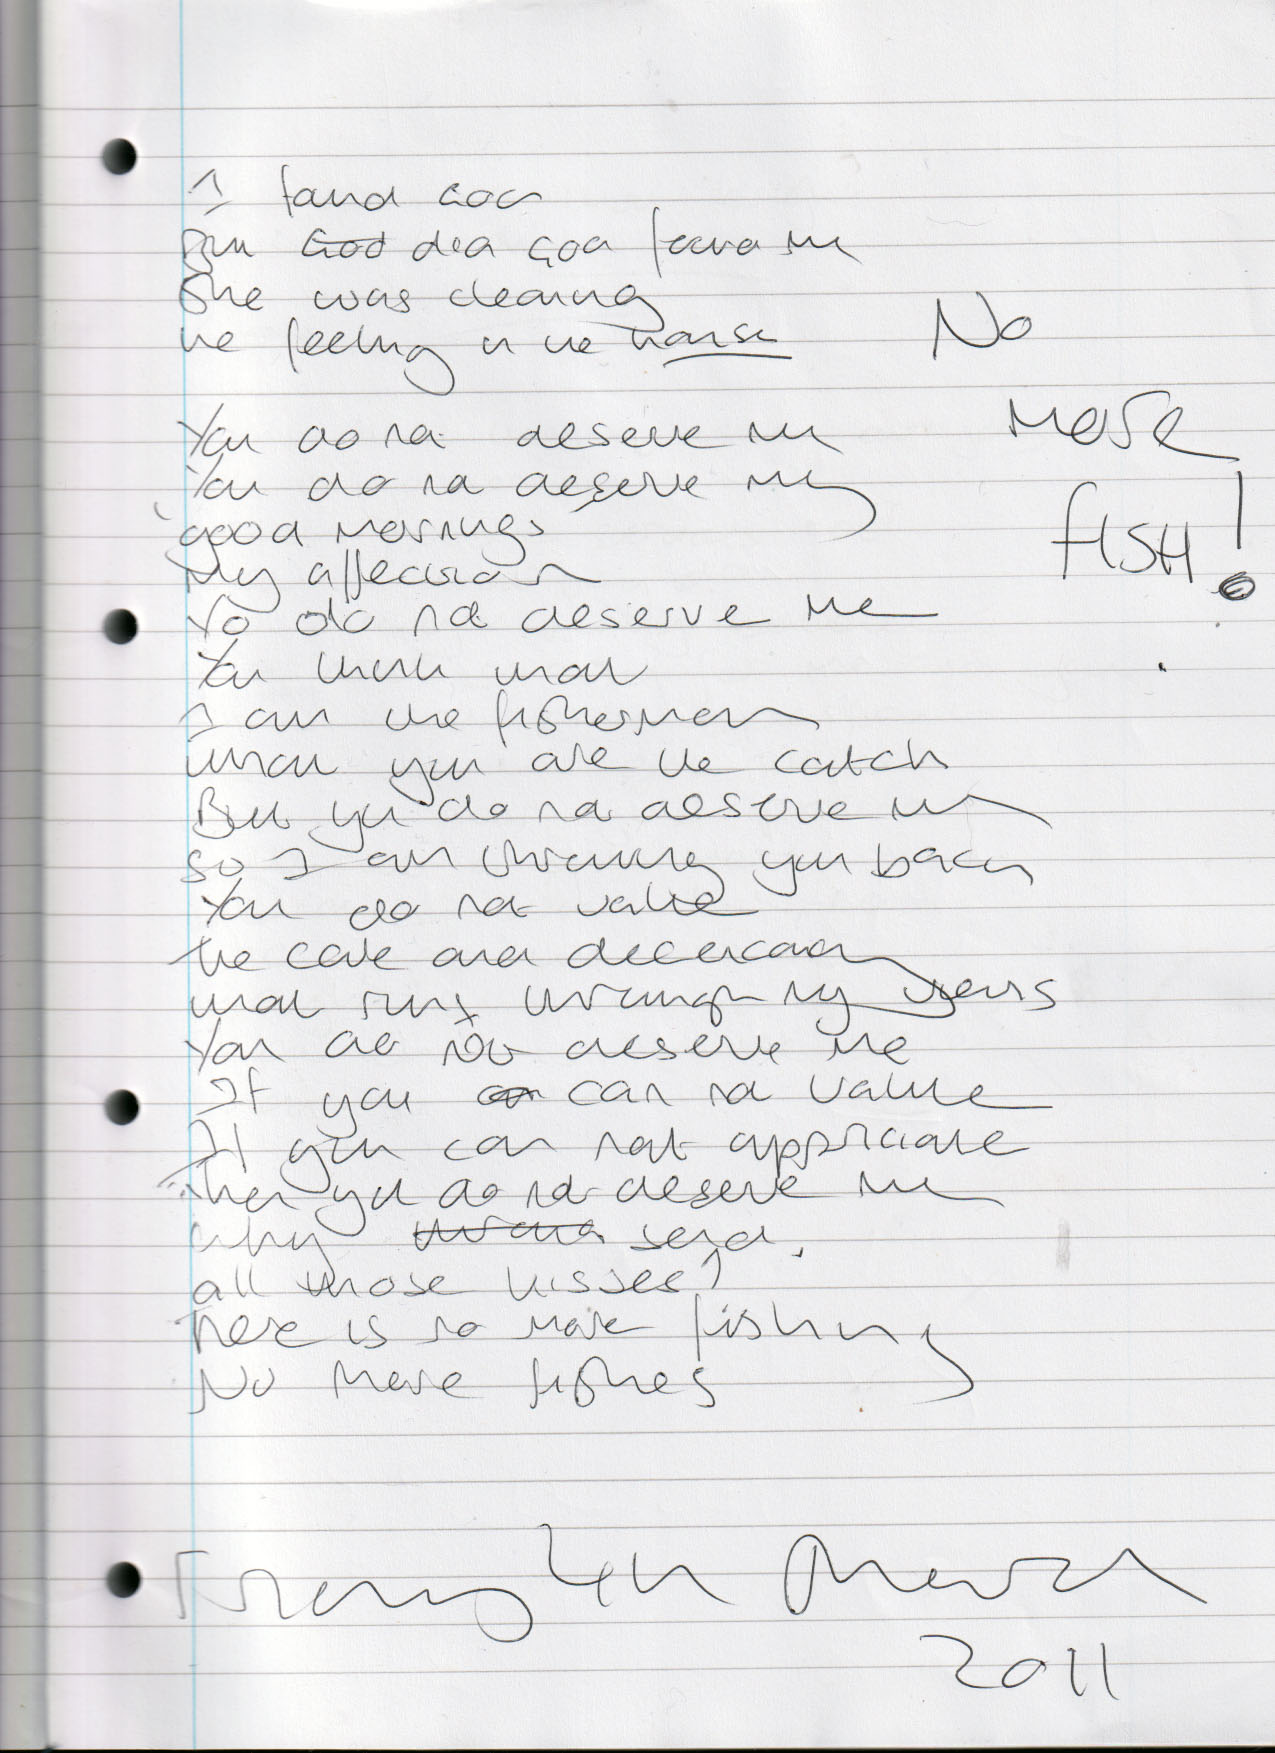 I found God
But God did God found me
She was cleaning
the feeling in the house
No
more
fish!
You do not deserve me
You do not deserve my
good mornings
My affection
Yo do not deserve me
You think that
I am the fisherman
that you are the catch
But you do not deserve me
so I am throwing you back
You do not value
the care and
that runs through my veins
You do not deserve me
If you can not value
If you can not appriciate
Then you do not deserve me
why send
all those kisses?
There is no more fishing
No more fishes
4th March
2011